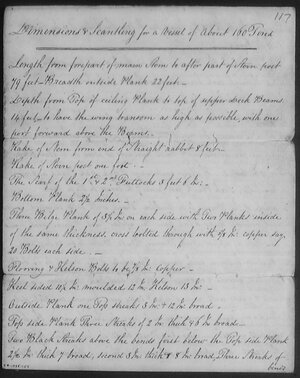 117
Dimensions & Scantling for a Vessel of About 160 Tons
Length from forepart of main Stem to after part of Stern post
79 feet - Breadth outside Plank 22 feet -
Depth from Top of ceiling Plank to top of upper deck Beams
14 feet - to have the wing transom as high as possible, with one
port forward above the Beams -
Rake of Stem from end of Straight rabbet 8 feet -
Rake of Stern post one foot -
The Scarf of the 1st & 2nd Futtocks 5 feet 6 In: -
Bottom Plank 2½ Inches. -
Thom Bilge Plank of 3½ In on each side with Two Planks inside
of the same thickness. cross bolted through with ⅝ In: copper say
20 Bolts each side. -
Flooring & Kelson Bolts to be ⅞ In: copper -
Keel sided 10½ In moulded 12 In Kelson 13 In -
Outside Plank one Top streaks 3 In & 12 In broad -
Top side Plank Three Streaks of 2 In thick & 8 In broad -
Two Black Streaks above the binds first below the Top side Plank
2½ In: thick 7 broad, second 3 In thick & 8 In broad, Three Streaks of
binds